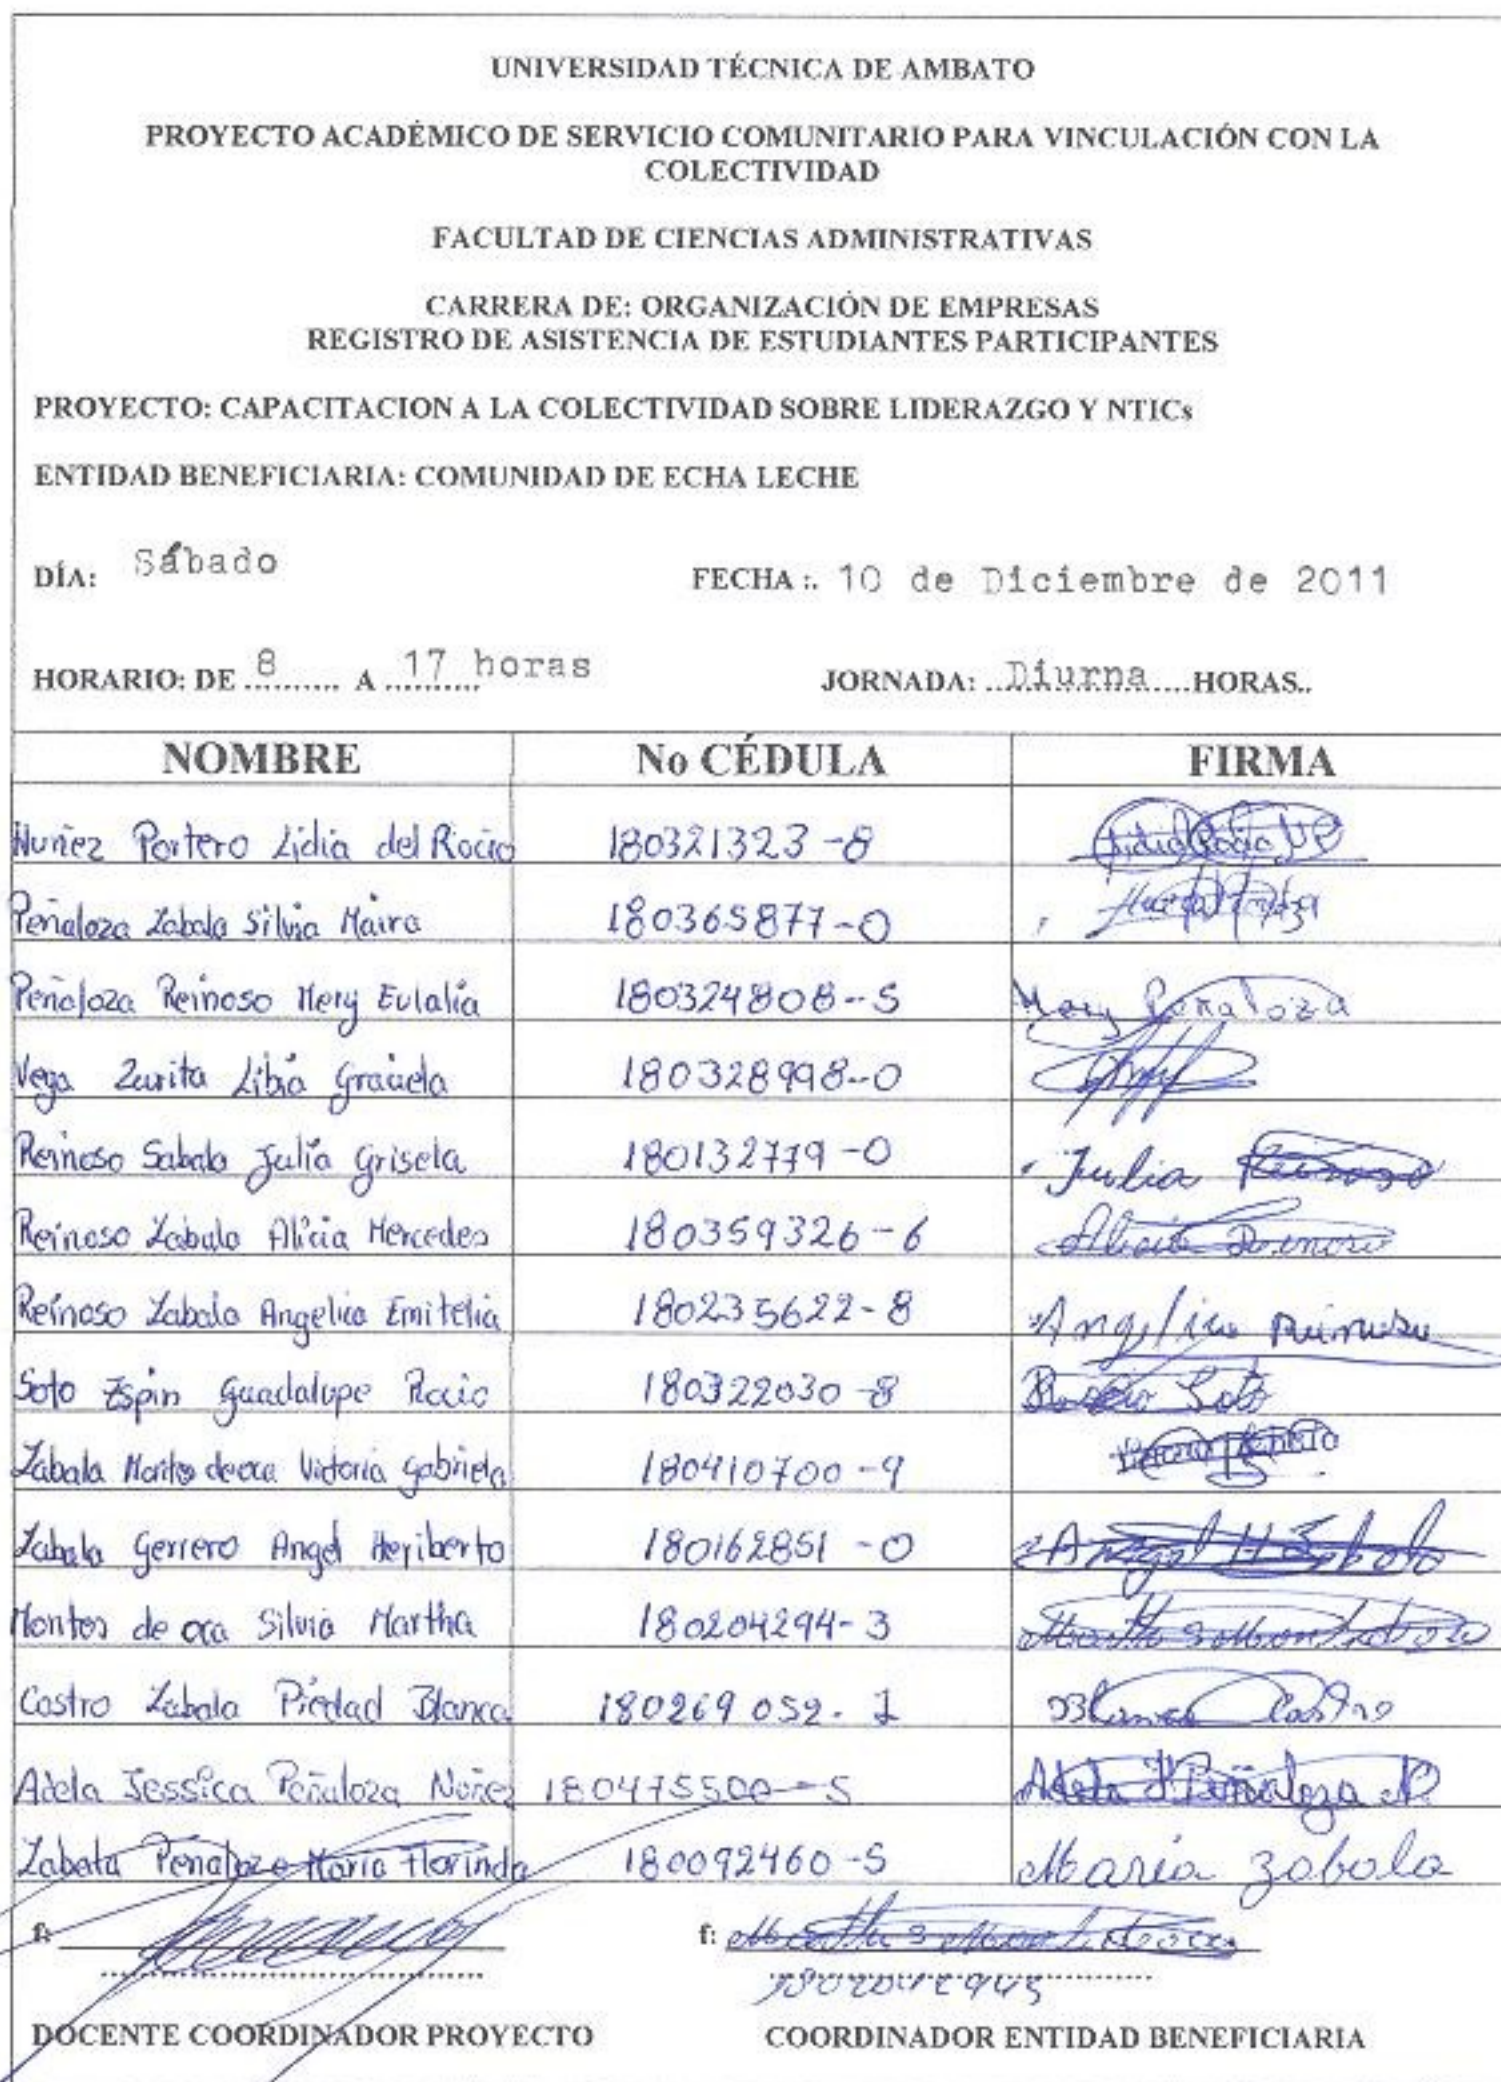 UNIVERSIDAD TÉCNICA DE AMBATO
PROYECTO ACADÉMICO DE SERVICIO COMUNITARIO PARA VINCULACIÓN CON LA
COLECTIVIDAD
FACULTAD DE CIENCIAS ADMINISTRATIVAS
CARRERA DE: ORGANIZACIÓN DE EMPRESAS
REGISTRO DE ASISTENCIA DE ESTUDIANTES PARTICIPANTES
PROYECTO: CAPACITACION A LA COLECTIVIDAD SOBRE LIDERAZGO Y NTICs
ENTIDAD BENEFICIARIA: COMUNIDAD DE ECHA LECHE
DÍA: Sábado FECHA :. 10 de Diciembre de 2011
HORARIO: DE 8 A 17 horas JORNADA: Diurna HORAS..
NOMBRE No CÉDULA FIRMA
Nuñez Portero Lidia del Rocio 180321323-8
Peñaloza Zabala Silvia Maira 180365877-0
Peñaloza Reinoso Mery Eulalia 180324808-5 Mery Peñaloza
Vega Zurita Libia Graciela 180328998-0
Reinoso Sabala Julia Grisela 180132779-0 Julia Reinoso
Reinoso Zabala Alicia Mercedes 180359326-6 Alicia Reinoso
Reinoso Zabala Angelica Emitelia 180235622-8 Angelica
Soto Espin Guadalupe Rocio 180322030-8 Rocio Soto
Zabala Montes deoca Victoria Gabriela 180410700-9
Zabala Gerrero Angel Heriberto 180162851-0 Angel H Zabala
Montes de oca Silvia Martha 180204294-3
Castro Zabala Piedad Blanca 180269052-1 Blanca Castro
Adela Jessica Peñaloza Nuñez 180475500-5 Adela J Peñaloza N
Zabala Penaloza Maria Florinda 180092460-5 Maria Zabala
f: f:
1802042943
DOCENTE COORDINADOR PROYECTO COORDINADOR ENTIDAD BENEFICIARIA